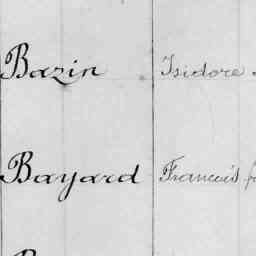 Bazin Isidore
Bayard Francois